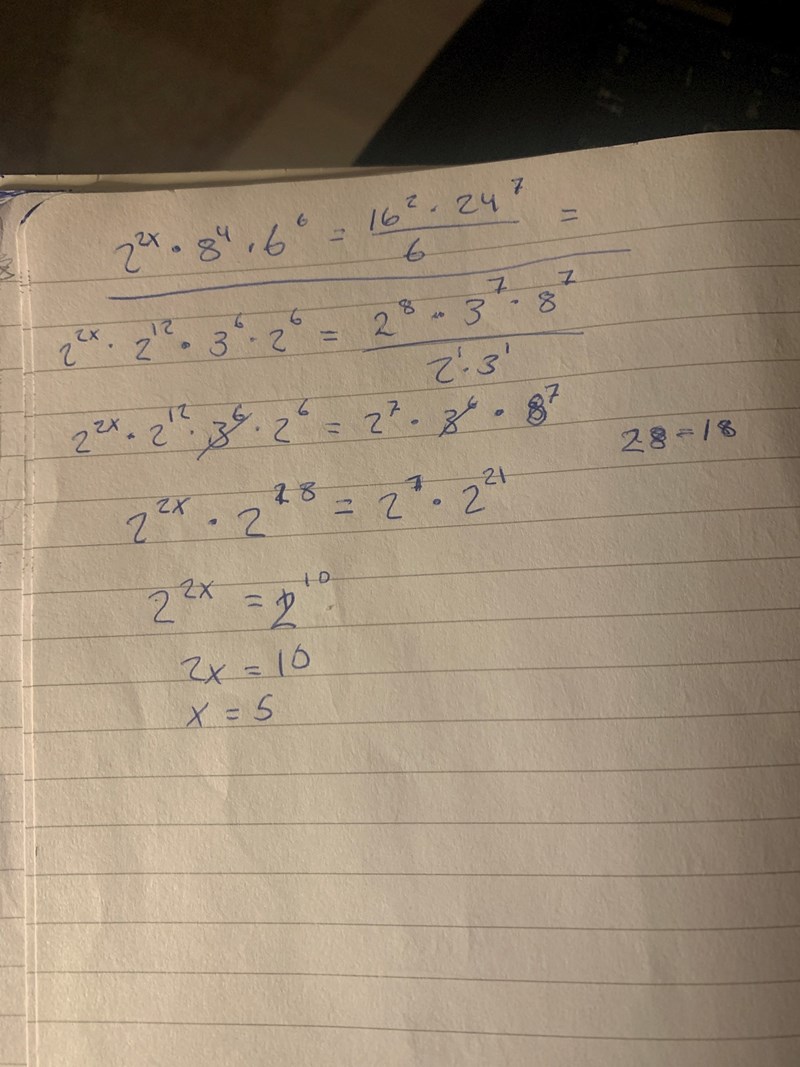 2^{2x} · 8^4 · 6^6 = \frac{16^2 · 24^7}{6} =
2^{2x} · 2^{12} · 3^6 · 2^6 = \frac{2^8 · 3^7 · 8^7}{2^1 · 3^1}
2^{2x} · 2^{12} · 3^6 · 2^6 = 2^7 · 3^6 · 8^7
28 = 18
2^{2x} · 2^{18} = 2^7 · 2^{21}
2^{2x} = 2^{10}
2x = 10
x = 5